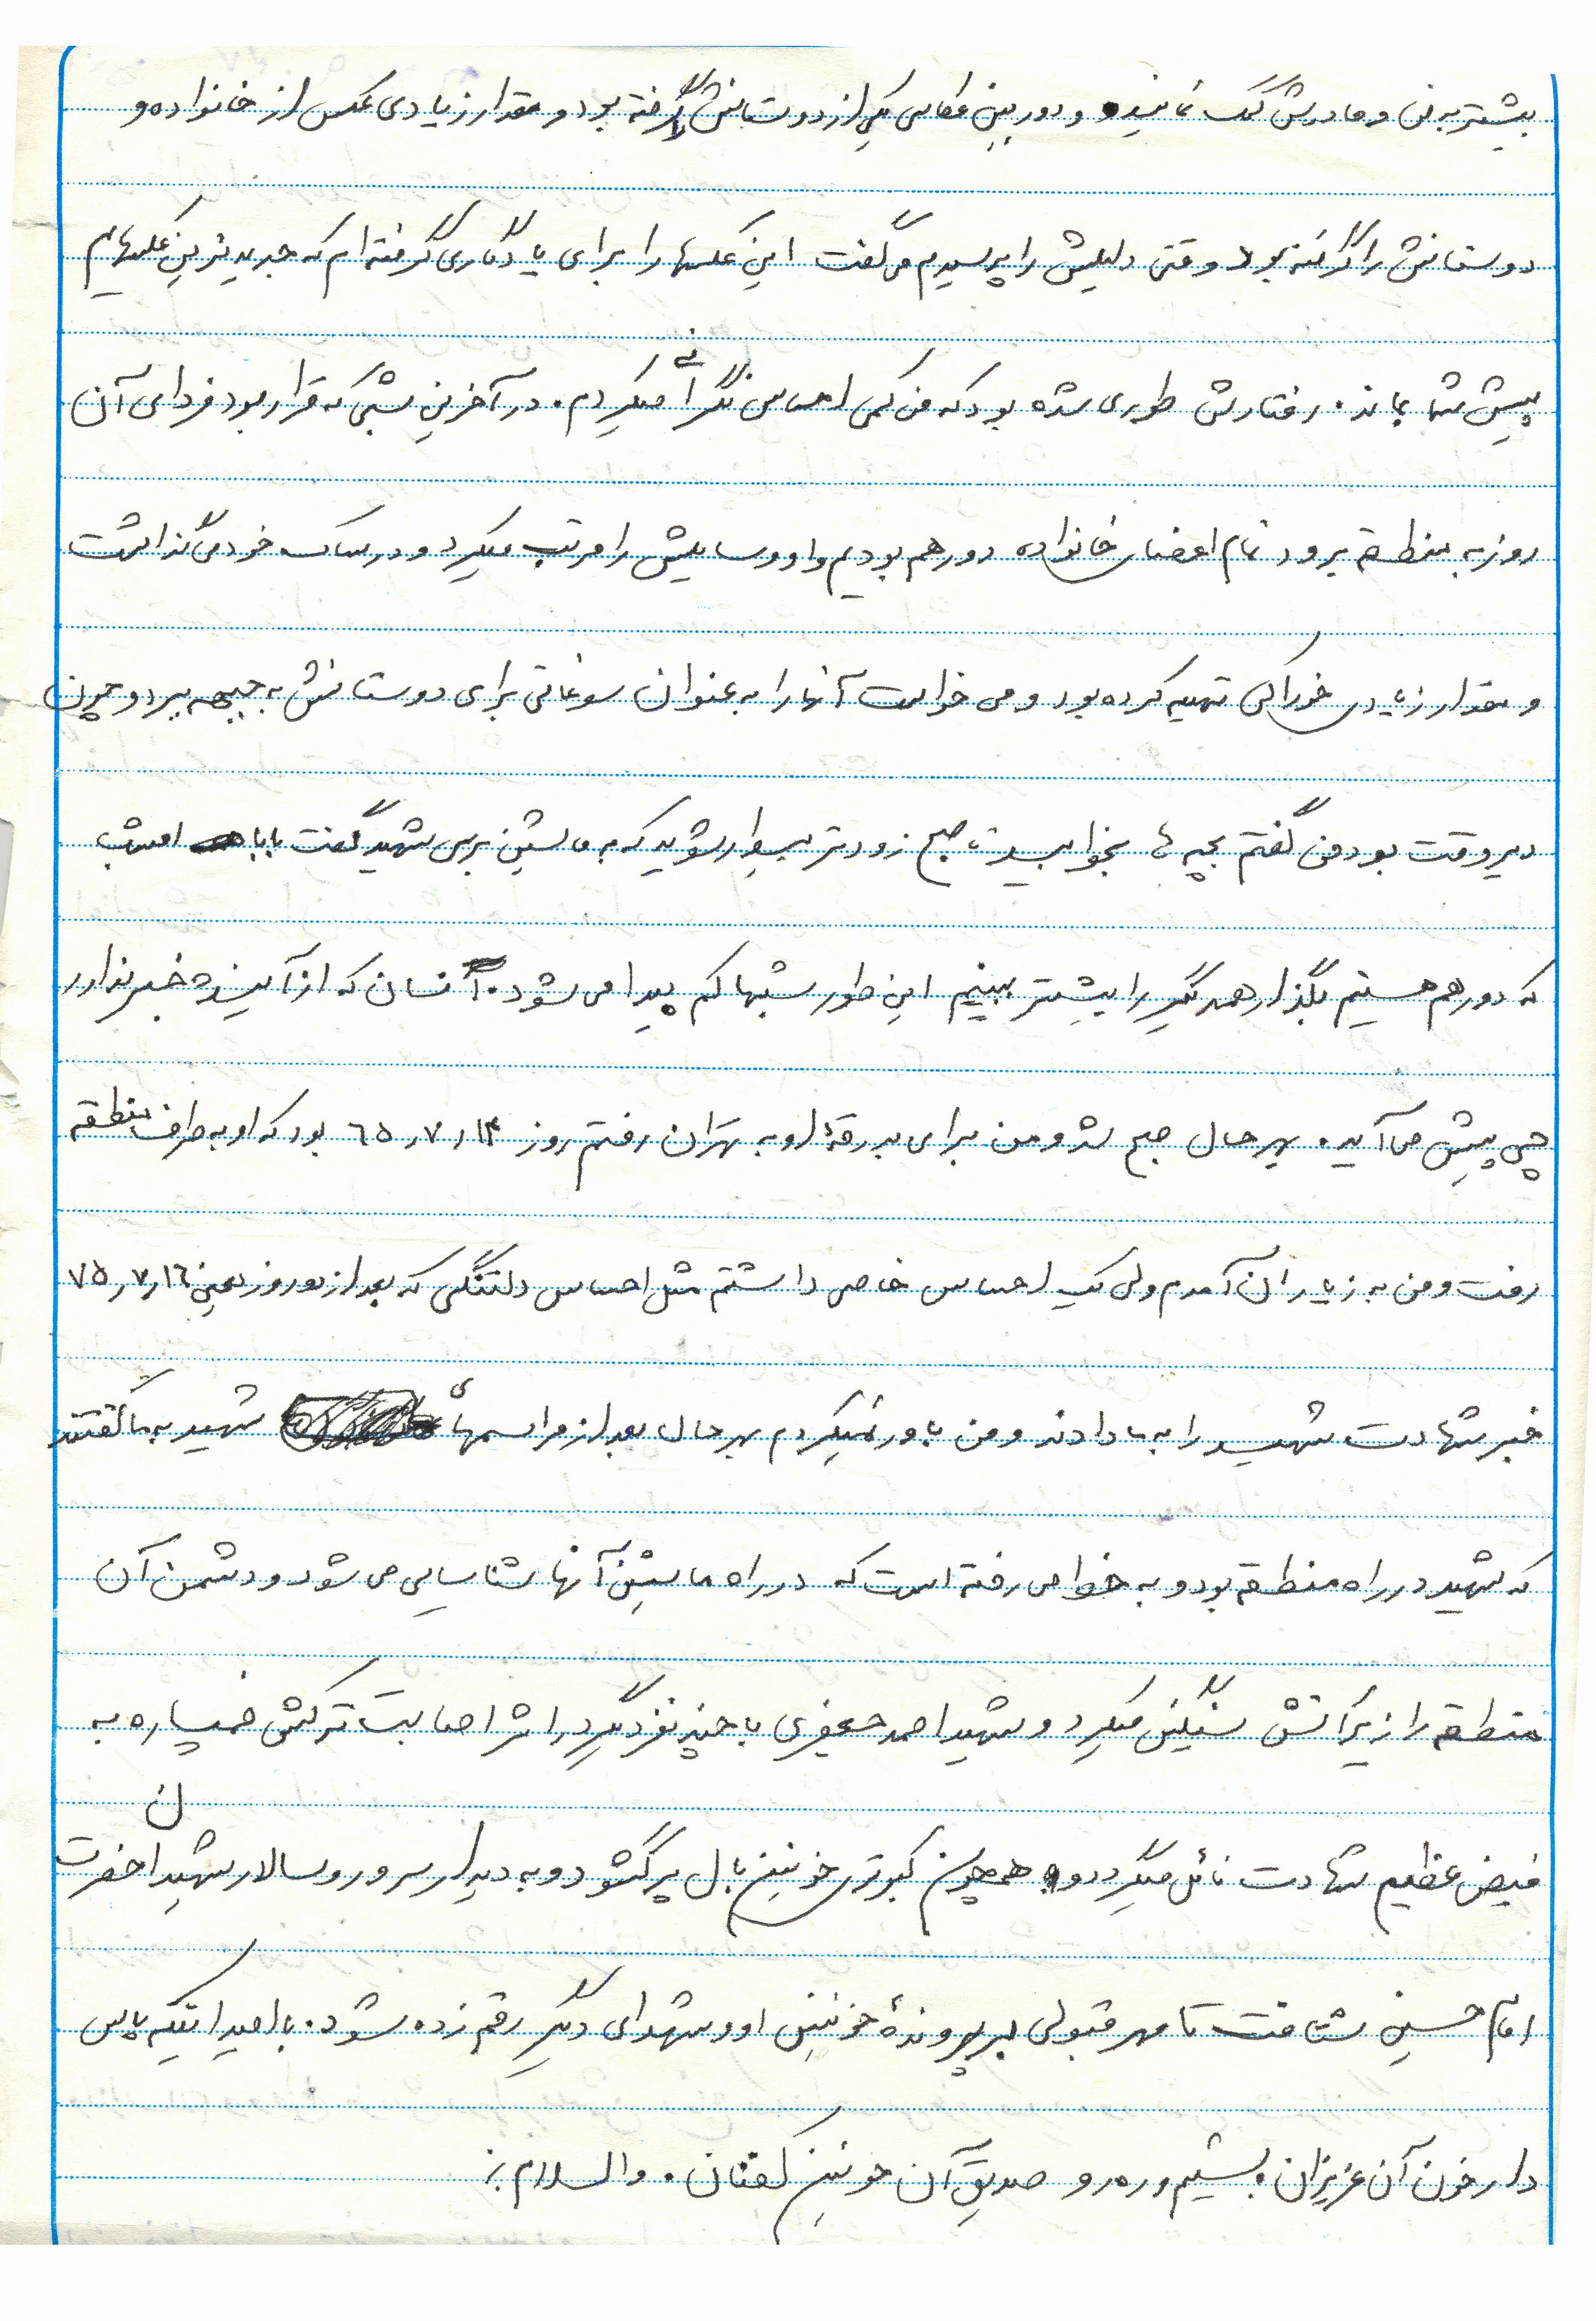 بیشتر به من و مادرش کمک نمایند و دوربین عکاسی یکی از دوستانش را گرفته بود و مقدار زیادی عکس از خانواده و
دوستانش را گرفته بود وقتی دلیلش را پرسیدم می گفت این عکسها را برای یادگاری گرفته ام که جدیدترین عکسهایم
پیش شما بماند. رفتارش طوری شده بود که من کمی احساس نگرانی میکردم. در آخرین شبی که قرار بود فردای آن
روز به منطقه برود تمام اعضای خانواده دور هم بودیم و او وسایلش را مرتب میکرد و در ساک خود می گذاشت
و مقدار زیادی خوراکی تهیه کرده بود و می خواست آنها را به عنوان سوغاتی برای دوستانش به جبهه ببرد و چون
دیر وقت بود من گفتم بچه ها بخوابید تا صبح زودتر بیدار شوید که به ماشین برسی شهید گفت بابا امشب
که دور هم هستیم بگذار همدیگر را بیشتر ببینیم این طور شبها کم پیدا می شود. انسان که از آینده خبر ندارد
چی پیش می آید. بهر حال صبح شد و من برای بدرقهٔ او به تهران رفتم روز ۶۵٫۷٫۱۴ بود که او به طرف منطقه
رفت و من به زیاران آمدم ولی یک احساس خاصی داشتم مثل احساس دلتنگی که بعد از دو روز یعنی ۷۵٫۷٫۱۶
خبر شهادت شهید را به ما دادند و من باور نمیکردم بهر حال بعد از مراسمهای شهید به ما گفتند
که شهید در راه منطقه بود و به خط می رفته است که در راه ماشین آنها شناسایی می شود و دشمن آن
منطقه را زیر آتش سنگین میکرد و شهید احمد جعفری با چند نفر دیگر در اثر اصابت ترکش خمپاره به
فیض عظیم شهادت نائل میگردد و همچون کبوتری خونین بال پر گشود و به دیدار سرور و سالار شهیدان حضرت
امام حسین شتافت تا مهر قبولی بر پروندهٔ خونین او و شهدای دیگر رقم زده شود. با امید اینکه پاس
دار خون آن عزیزان باشیم و رهرو صدیق آن خونین کفنان. والسلام